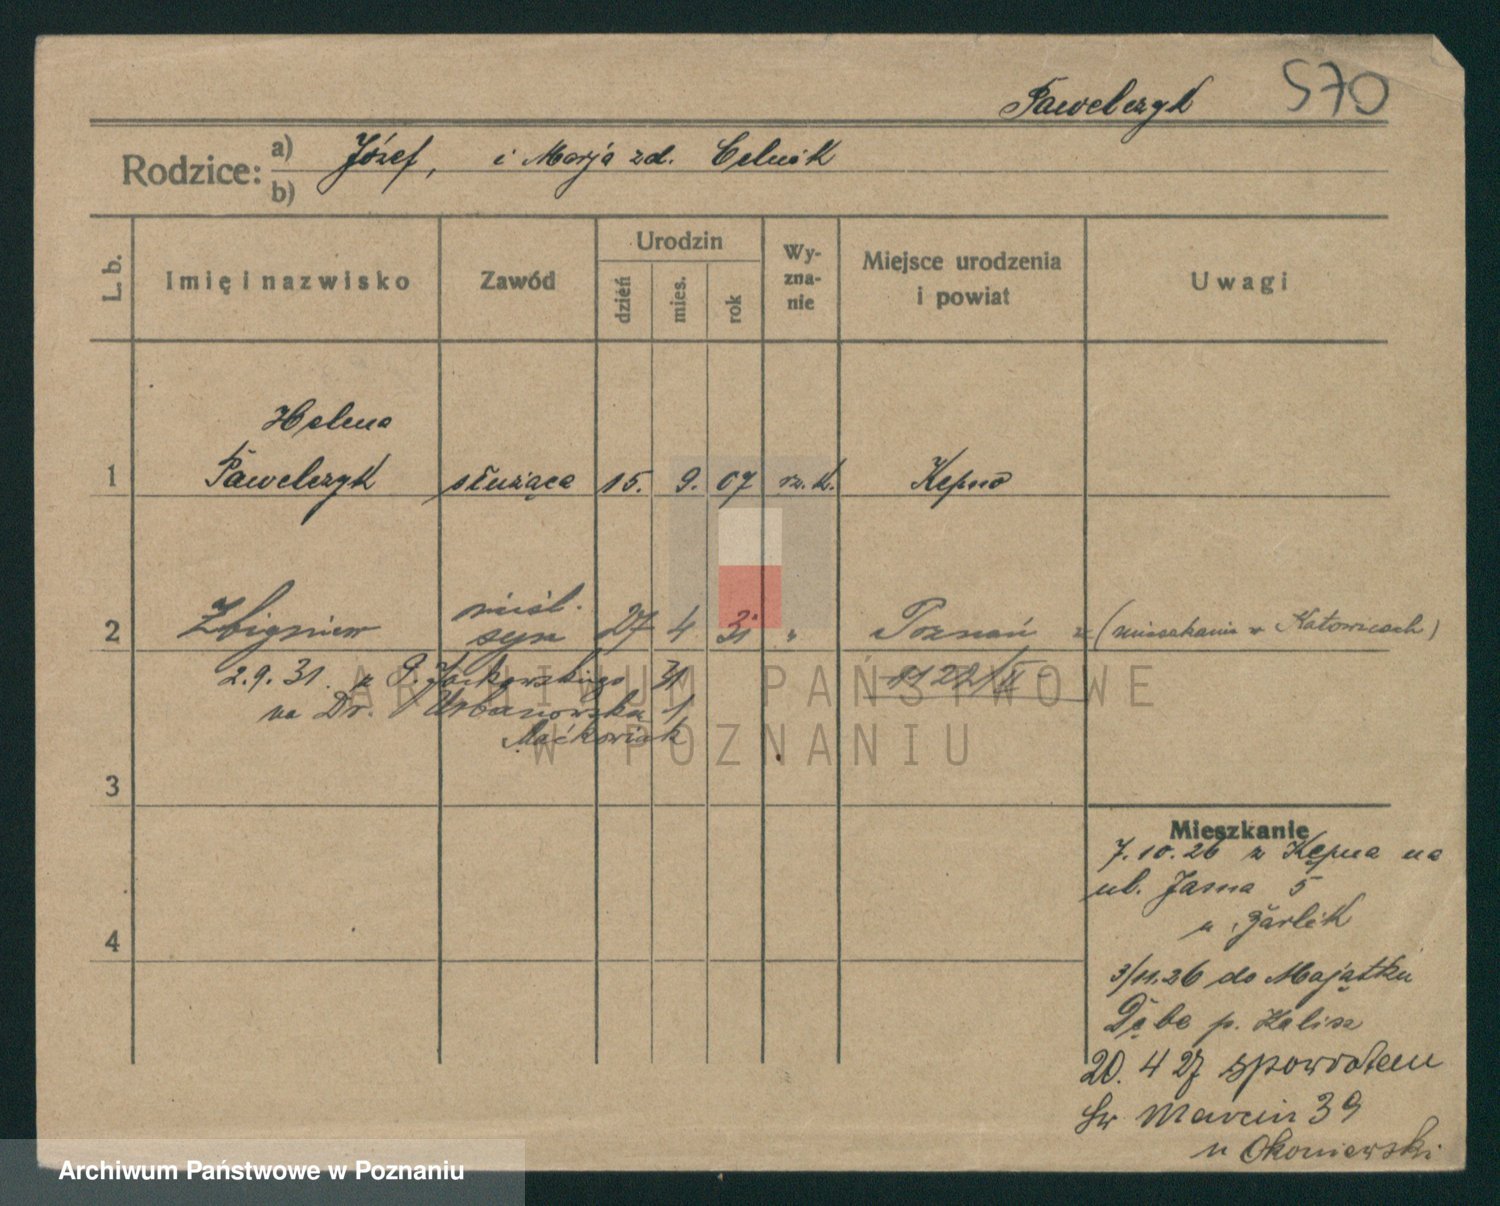 Pawelczyk 570
Rodzice: a) Józef, i Marja zd. Celnik
b)
L. b. Imię i nazwisko Zawód Urodzin dzień mies. rok Wy-zna-nie Miejsce urodzenia i powiat Uwagi
Helena
1 Pawelczyk służąca 15. 9. 07 rz. k. Kępno
nieśl.
2 Zbigniew syn 27 4 31 " Poznań (mieszkanie w Katowicach)
2.9.31 u P. Jackowskiego 31 1122/II
na Dr. Urbanowska 1
Maćkowiak
3
Mieszkanie
7.10.26 z Kępna na
ul. Jasna 5
u Żarlik
4
3/11.26 do Majątku
Dębe p. Kalisz
20. 4 27 spowrotem
Św Marcin 39
u Okoniewski
ARCHIWUM PAŃSTWOWE
W POZNANIU
Archiwum Państwowe w Poznaniu